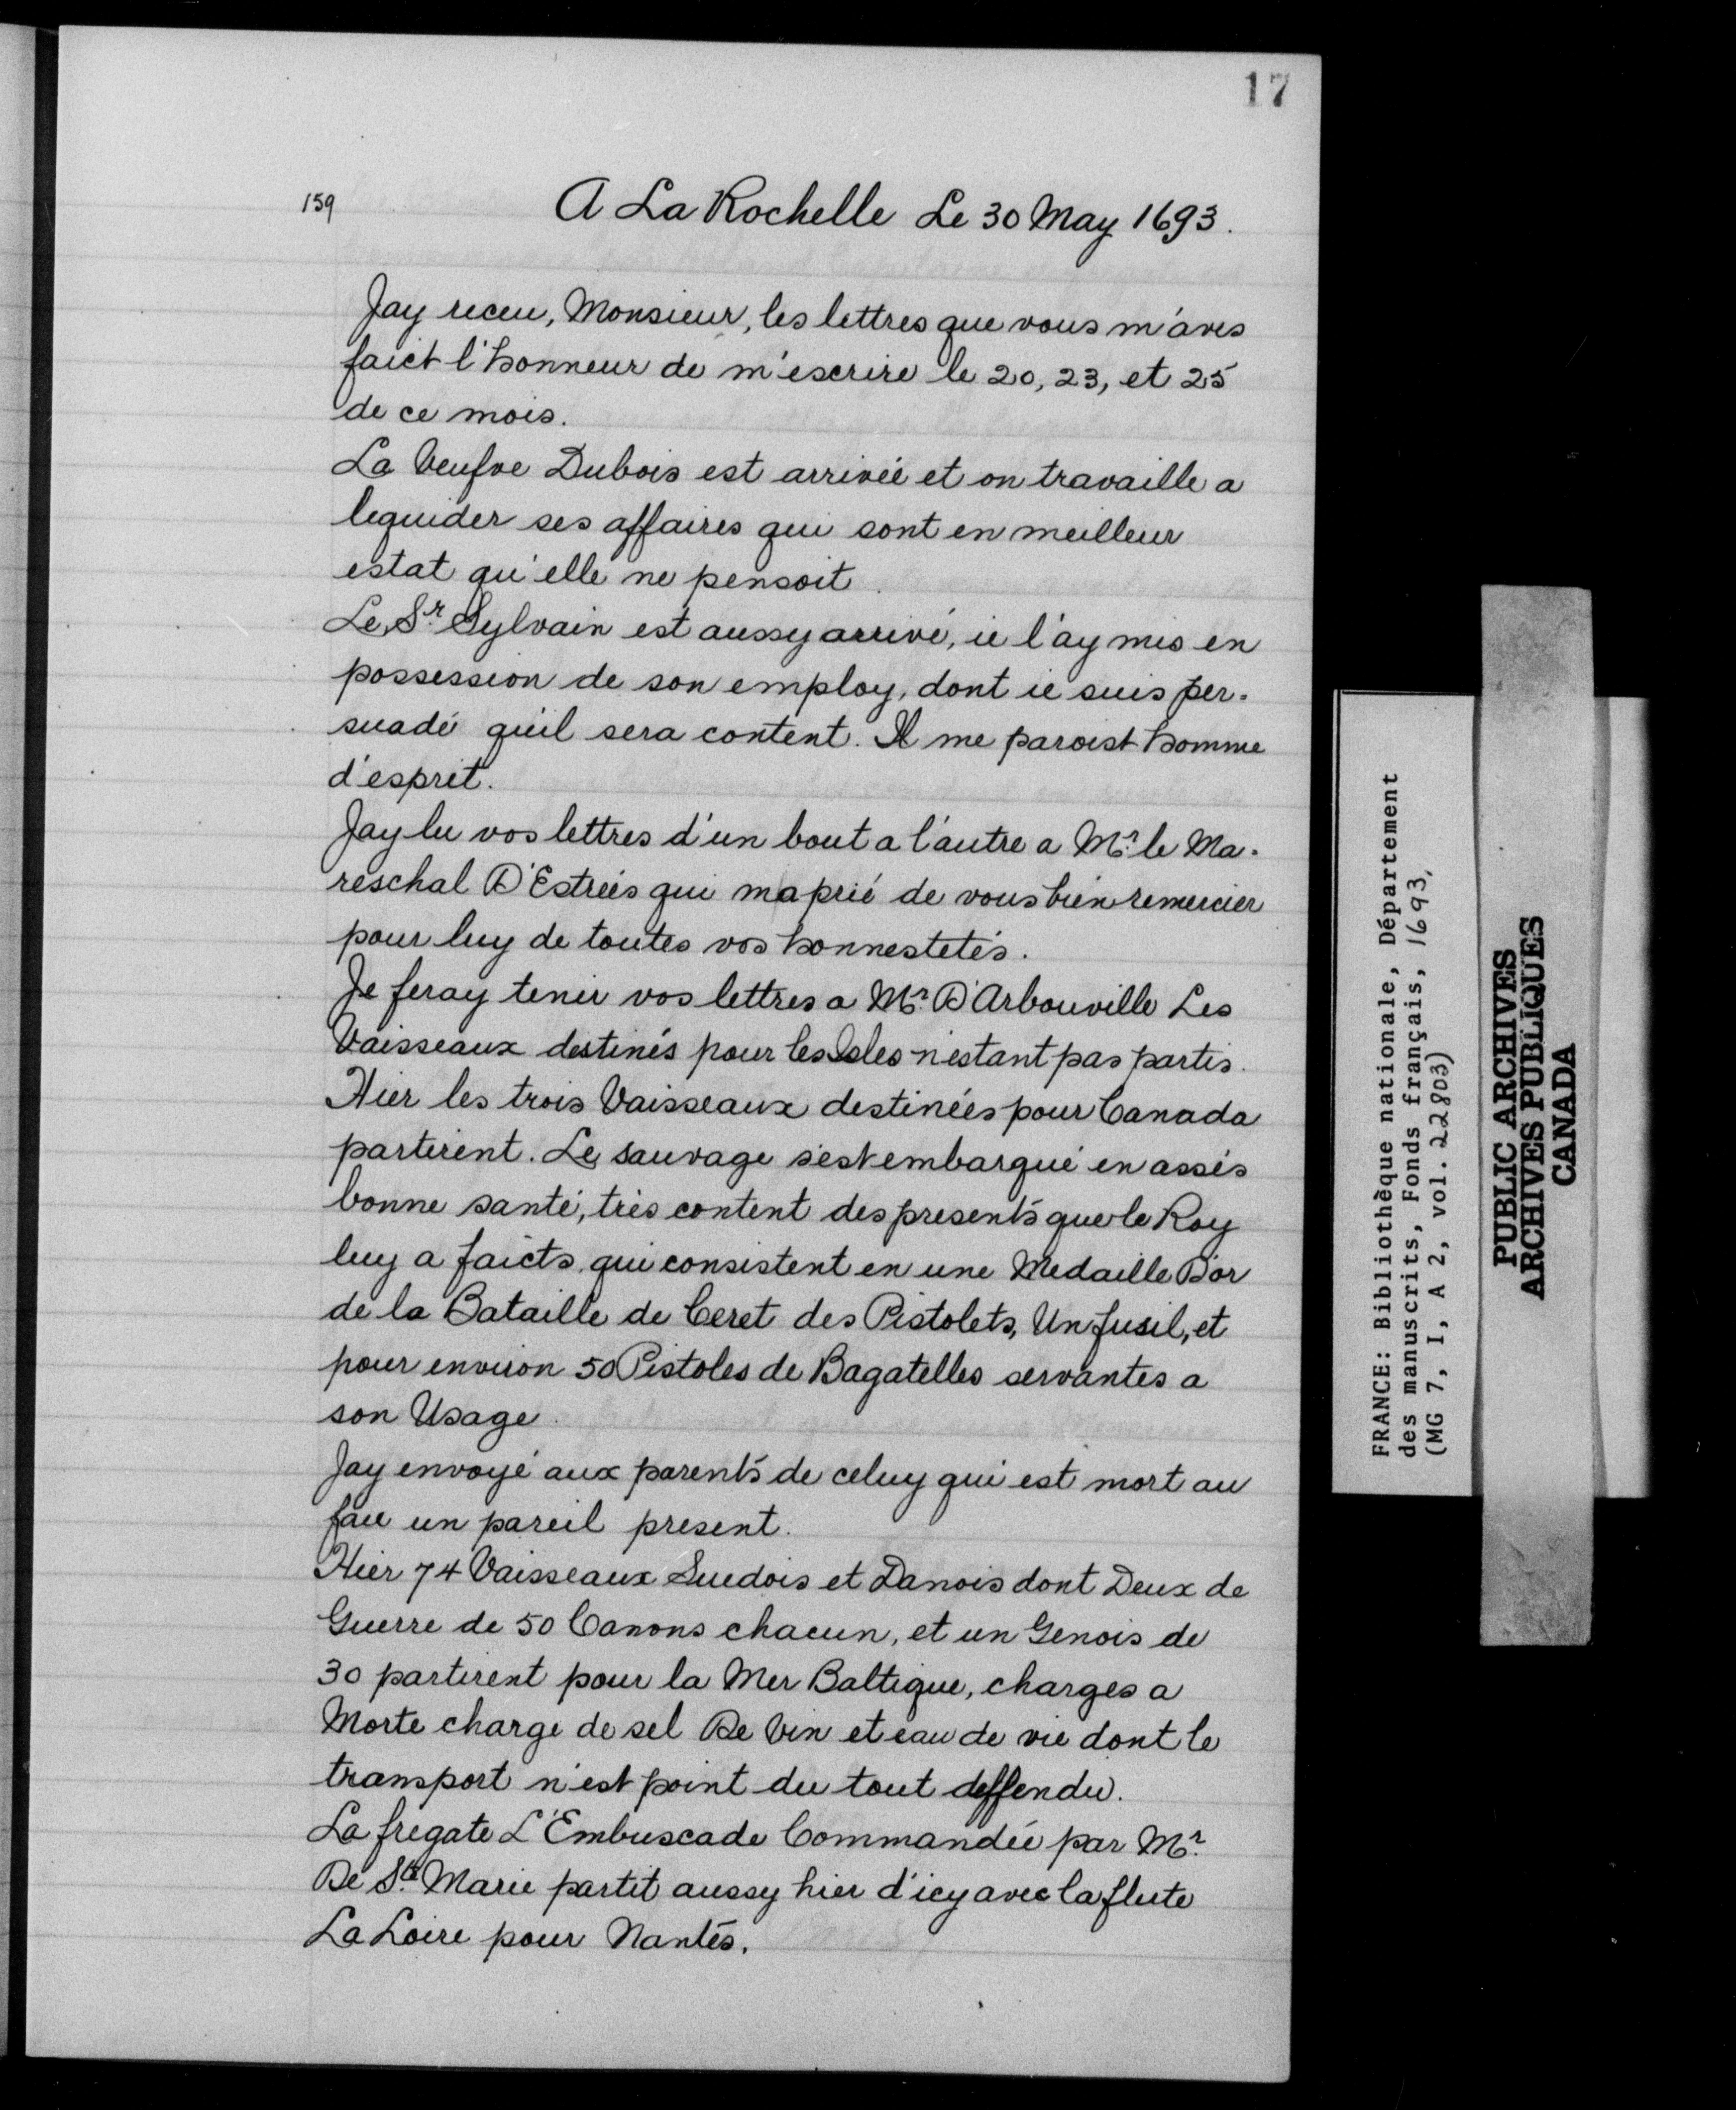 17
159
A La Rochelle Le 30 May 1693.
Jay receu, Monsieur, les lettres que vous m'aves
faict l'honneur de m'escrire le 20, 23, et 25
de ce mois.
La Veufve Dubois est arrivée et on travaille a
liquider ses affaires qui sont en meilleur
estat qu'elle ne pensoit.
Le Sr. Sylvain est aussy arrivé, ie l'ay mis en
possession de son employ, dont ie suis per-
suadé qu'il sera content. Il me paroist homme
d'esprit.
Jay lu vos lettres d'un bout a l'autre a Mr. le Ma-
reschal D'Estrées qui ma prié de vous bien remercier
pour luy de toutes vos honnestetés.
Je feray tenir vos lettres a Mr. D'Arbouville Les
Vaisseaux destinés pour les Isles n'estant pas partis.
Hier les trois Vaisseaux destinées pour Canada
partirent. Le sauvage s'est embarqué en assés
bonne santé, très content des presents que le Roy
luy a faicts qui consistent en une Medaille D'or
de la Bataille de Ceret des Pistolets, Un fusil, et
pour environ 50 Pistoles de Bagatelles servantes a
son Usage.
Jay envoyé aux parents de celuy qui est mort au
fau un pareil present.
Hier 74 Vaisseaux Suedois et Danois dont Deux de
Guerre de 50 Canons chacun, et un Genois de
30 partirent pour la Mer Baltique, charges a
Morte charge de sel De Vin et eau de vie dont le
transport n'est point du tout deffendu.
La fregate L'Embuscade Commandée par Mr.
De Ste. Marie partit aussy hier d'icy avec la flute
La Loire pour Nantes.
FRANCE: Bibliothèque nationale, Département
des manuscrits, Fonds français, 1693,
(MG 7, I, A 2, vol. 22803)
PUBLIC ARCHIVES
ARCHIVES PUBLIQUES
CANADA